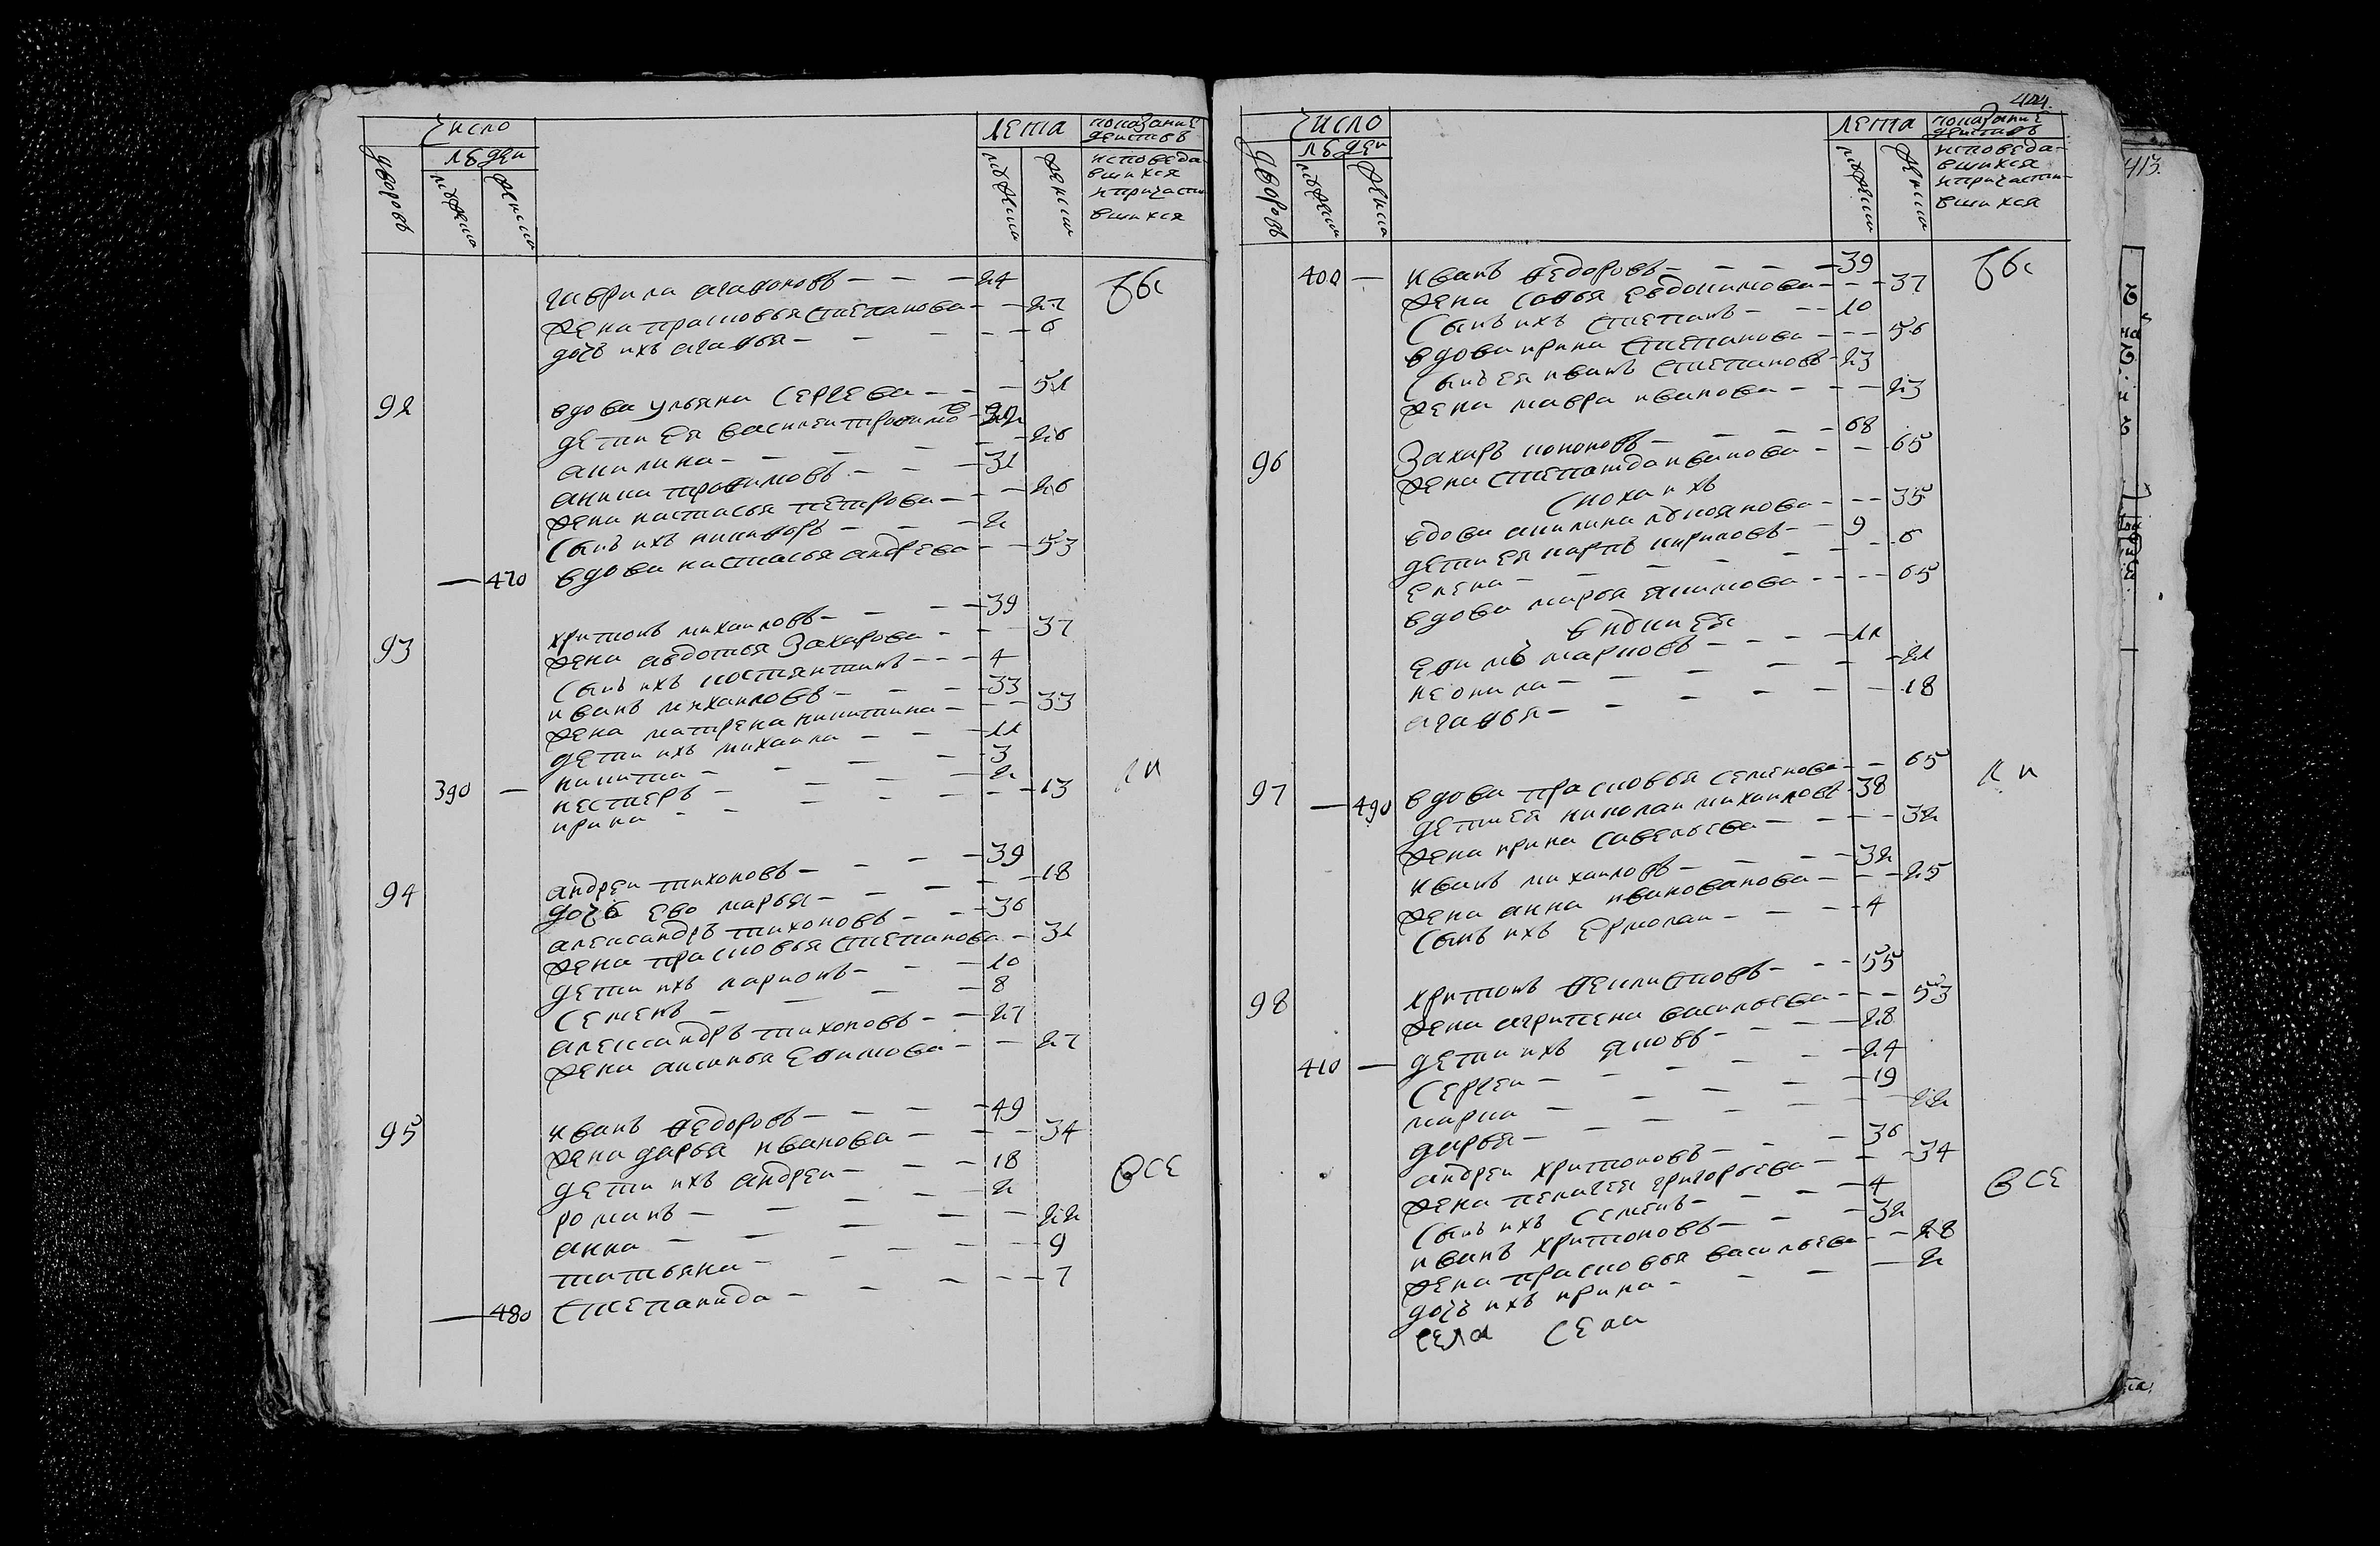 число
лета
показание
действъ
дворовъ
людеи
мужеска
женска
мужеска
женска
исповеда
вшихся
ипричасти
вшихся
гаврила агафоновъ - - - 24
бы
жена прасковья степанова - - 27
дочь ихъ агафья - - - - 6
92 вдова ульяна сергева - - - 51
дети ея василеи трофимо
акилина - - - - - 26
аника трофимовъ - - - 31
жена настасья петрова - - - 26
сынъ ихъ никифоръ - - - 2
— 470 вдова настасья андрева - - 53
93 харитонъ михаиловъ - - - 39
жена авдотья захарова - - - 37
сынъ ихъ костянтинъ - - - 4
иванъ михаиловъ - - - 33
жена матрена никитина - - - 33
дети ихъ михаила - - - 11
никита - - - - 3
390 — нестеръ - - - - 2
ирина - - - - - 13
ли
94 андреи тихоновъ - - - 39
дочь ево марья - - - - 18
александръ тихоновъ - - - 36
жена прасковья степанова - 31
дети ихъ ларионъ - - - 10
семенъ - - - - 8
александръ тихоновъ - - 27
жена аксинья ефимова - - 27
95 иванъ федоровъ - - - 49
жена дарья иванова - - - 34
дети ихъ андреи - - - 18
все
романъ - - - - 2
анна - - - - - 22
татьяна - - - - - 9
— 480 степанида - - - - - 7
414.
число
лета
показание
действъ
дворовъ
людеи
мужеска
женска
мужеска
женска
исповеда-
вшихся
ипричасти-
вшихся
413.
400 — иванъ федоровъ - - - - 39
бы
жена софья евдокимова - - - 37
сынъ ихъ степанъ - - - 10
вдова ирина степанова - - - 56
сынъ ея иванъ степановъ - 23
жена мавра иванова - - - 23
96 захаръ кононовъ - - - 68
жена степанида иванова - - - 65
сноха ихъ
вдова акилина лукоянова - - - 35
дети ея карпъ кириловъ - - 9
елена - - - - - - 6
вдова марья якимова - - - - 65
внуки ея
ефимъ марковъ - - - - 11
неонила - - - - - 21
агафья - - - - - 18
97 вдова прасковья семенова - - 65
ли
— 490 дети ея николаи михаиловъ - 38
жена ирина савельева - - - - 32
иванъ михаиловъ - - - 32
жена анна иванова - - - 25
сынъ ихъ ермолаи - - - 4
98 харитонъ феклистовъ - - - 55
жена агрипена васильева - - - 53
410 — дети ихъ яковъ - - - - 28
сергеи - - - - - 24
марка - - - - - 19
дарья - - - - - 22
андреи харитоновъ - - - 36
жена пелагея григорьева - - - 34
сынъ ихъ семенъ - - - - 4
все
иванъ харитоновъ - - - 32
жена прасковья васильева - - 28
дочь ихъ ирина - - - - 2
села села